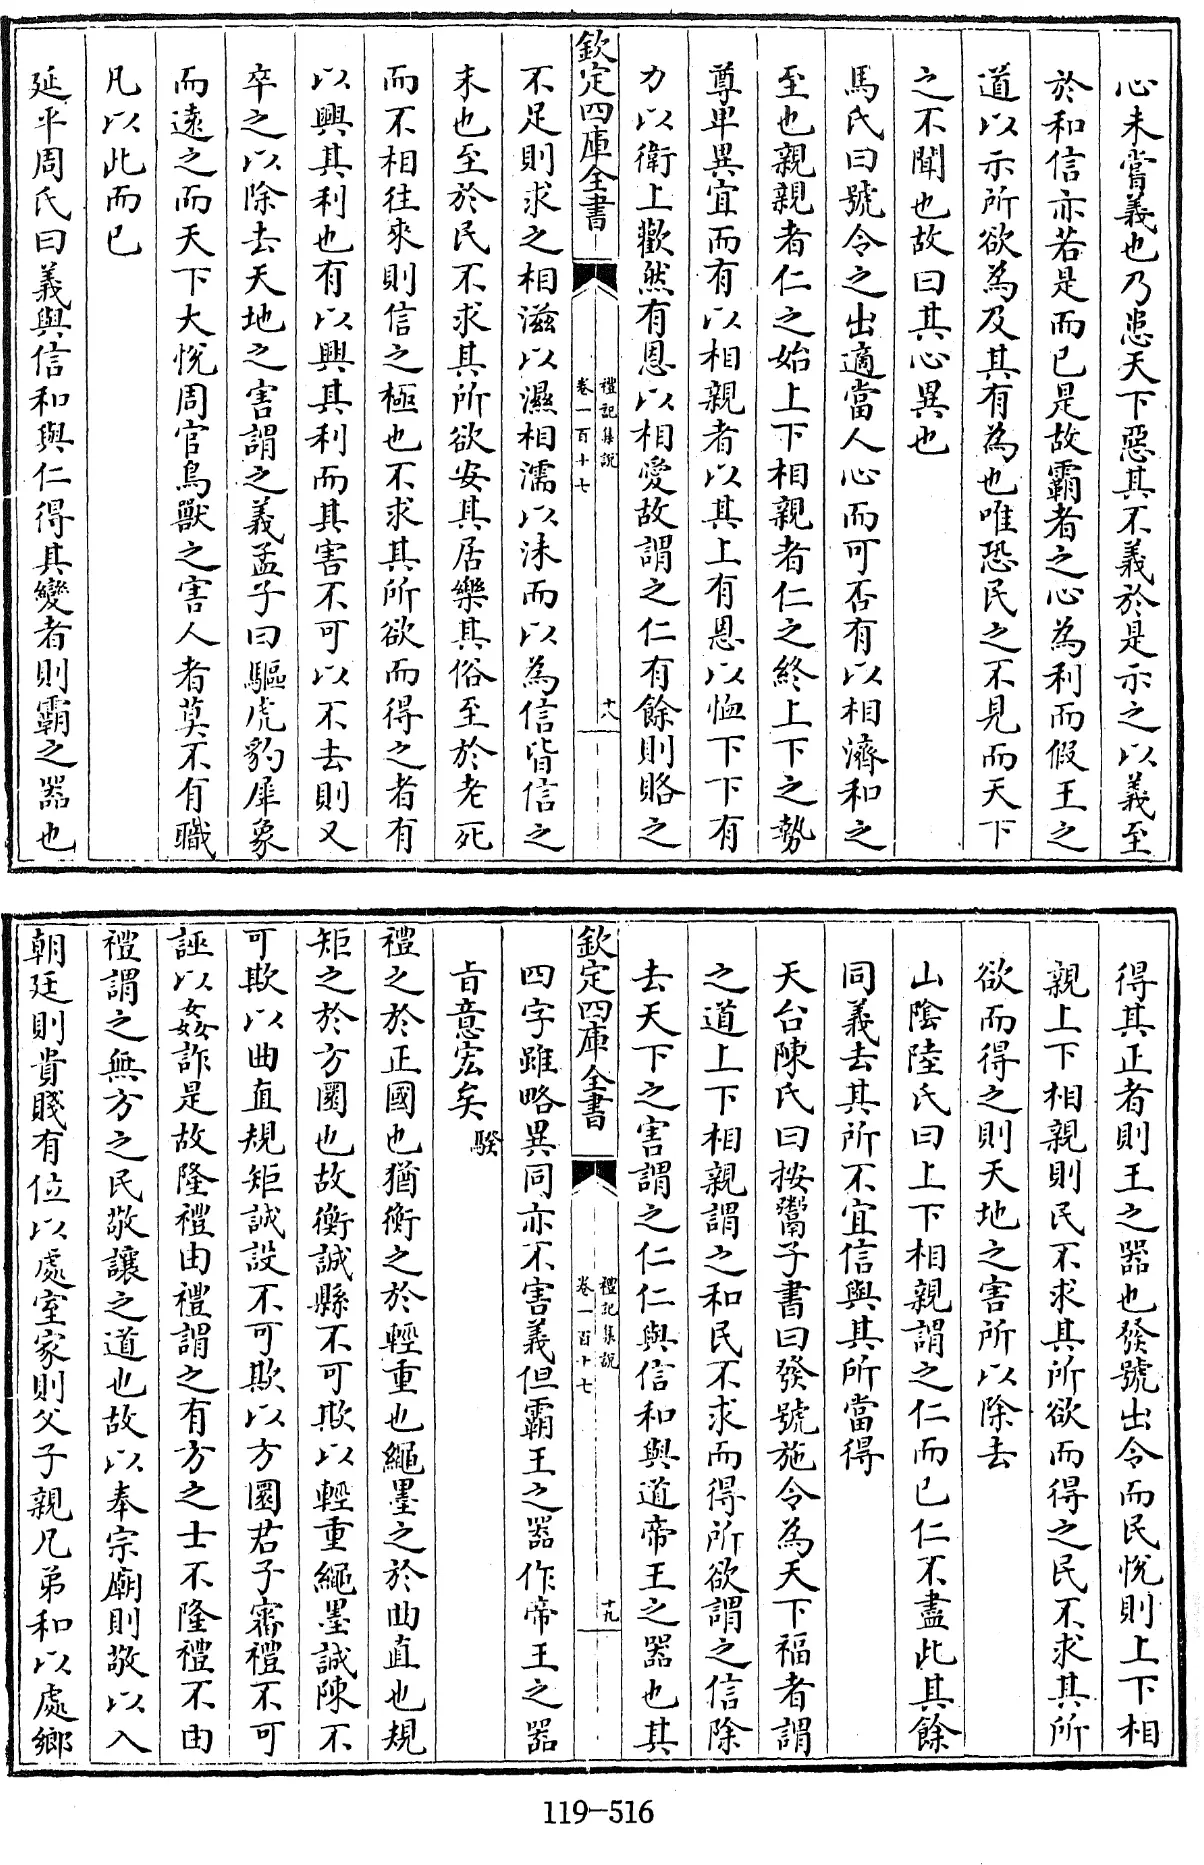 心未嘗義也乃患天下惡其不義於是示之以義至
於和信亦若是而已是故霸者之心為利而假王之
道以示所欲為及其有為也唯恐民之不見而天下
之不聞也故曰其心異也
馬氏曰號令之出適當人心而可否有以相濟和之
至也親親者仁之始上下相親者仁之終上下之勢
尊卑異宜而有以相親者以其上有恩以恤下下有
力以衛上歡然有恩以相愛故謂之仁有餘則賂之
欽定四庫全書
禮記集說
卷一百十七
十八
不足則求之相滋以濕相濡以沫而以為信皆信之
末也至於民不求其所欲安其居樂其俗至於老死
而不相往來則信之極也不求其所欲而得之者有
以興其利也有以興其利而其害不可以不去則又
卒之以除去天地之害謂之義孟子曰驅虎豹犀象
而遠之而天下大悅周官鳥獸之害人者莫不有職
凡以此而已
延平周氏曰義與信和與仁得其變者則霸之器也
得其正者則王之器也發號出令而民悅則上下相
親上下相親則民不求其所欲而得之民不求其所
欲而得之則天地之害所以除去
山陰陸氏曰上下相親謂之仁而已仁不盡此其餘
同義去其所不宜信與其所當得
天台陳氏曰按鬻子書曰發號施令為天下福者謂
之道上下相親謂之和民不求而得所欲謂之信除
去天下之害謂之仁仁與信和與道帝王之器也其
欽定四庫全書
禮記集說
卷一百十七
十九
四字雖略異同亦不害義但霸王之器作帝王之器
旨意宏矣 騤
禮之於正國也猶衡之於輕重也繩墨之於曲直也規
矩之於方圜也故衡誠縣不可欺以輕重繩墨誠陳不
可欺以曲直規矩誠設不可欺以方圜君子審禮不可
誣以姦詐是故隆禮由禮謂之有方之士不隆禮不由
禮謂之無方之民敬讓之道也故以奉宗廟則敬以入
朝廷則貴賤有位以處室家則父子親兄弟和以處鄉
119-516